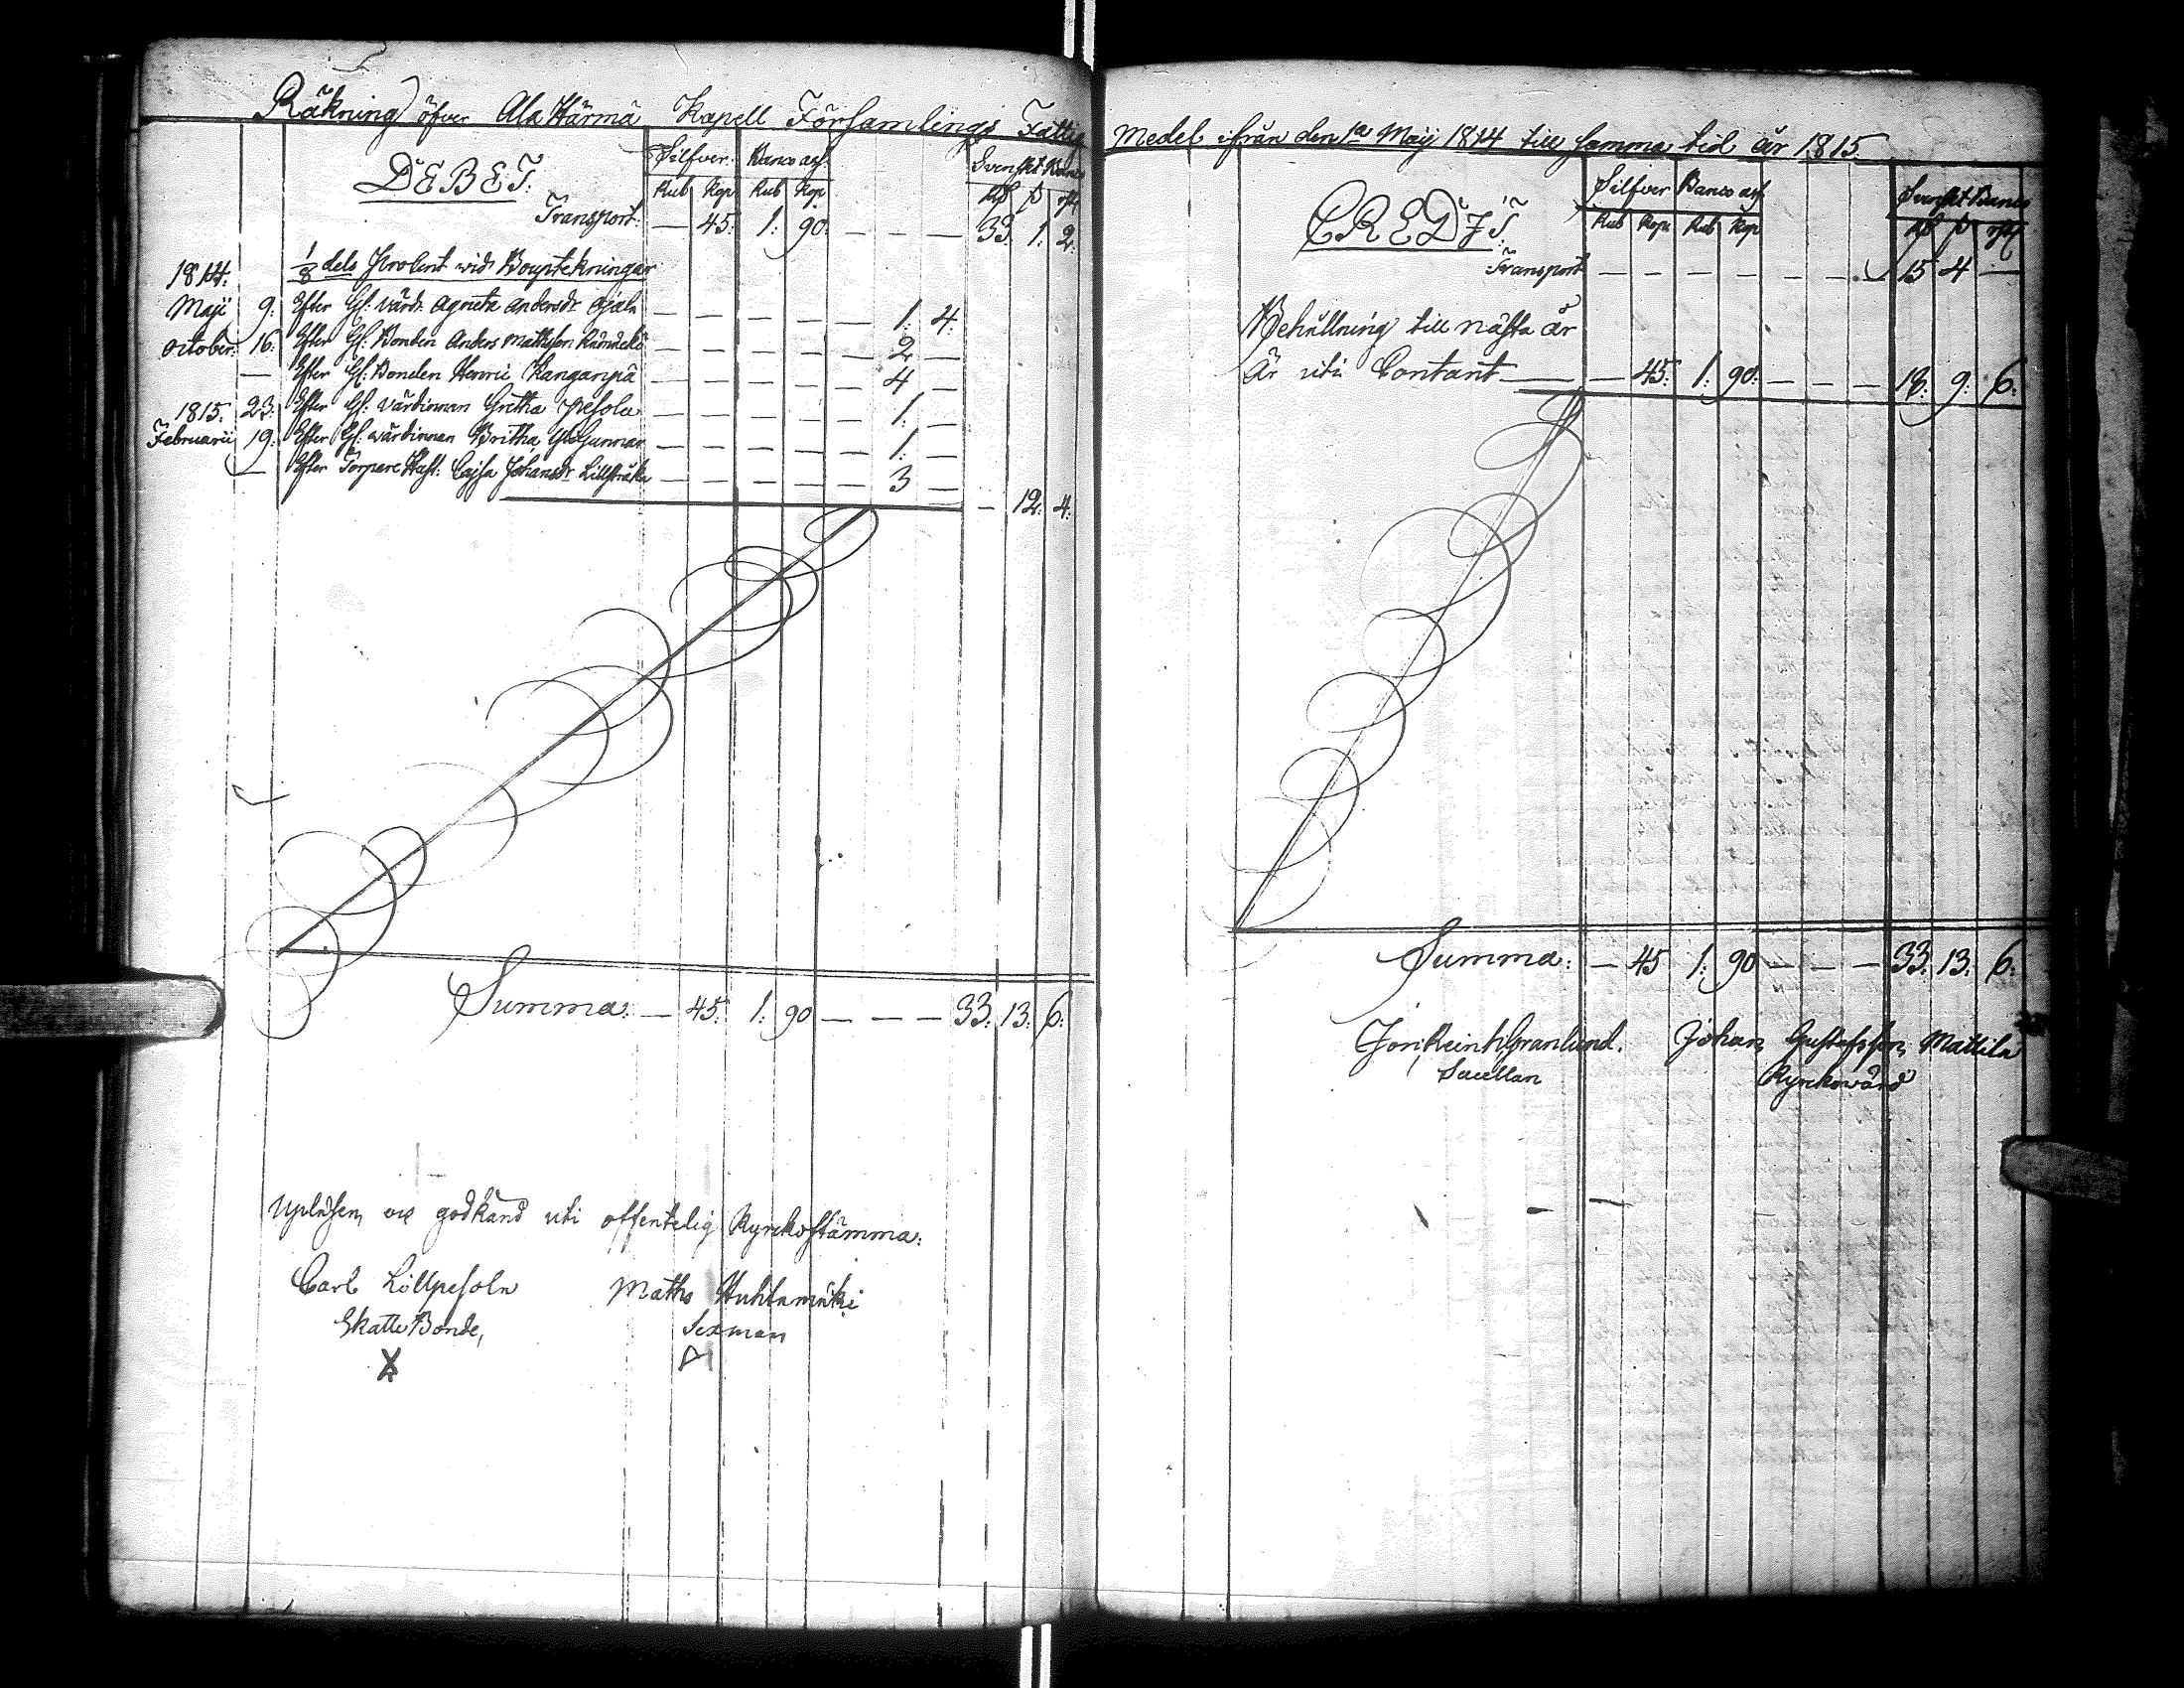 Räkning öfver Ala Härmä Kapell Församlings Fattig
DEBET.
Silfver. Banco ass. Svenskt Banco
Rub Kop Rub Kop rd s rst
Transport. — 45. 1. 90. — — — 33. 1. 2.
1814. 1/8 dels Procent wid Bouptekningar
Maji 9. Efter Gf. värd. Agneta Andersdr Ojala — — — — — 1. 4.
October. 16. Efter Gf. Bonden Anders Mathsson — — — — — 2 —
— Efter Gf. Bonden Henric Kangaspä — — — — — 4 —
1815. 23. Efter Gf. värdinnan Gretha Pesola — — — — — 1. —
Februarii 19. Efter Gf. wärdinnan Britha — — — — — 1. —
— Efter Torpare Hust. Cajsa Johansdr — — — — — 3 —
— 12. 4.
Summa. — 45. 1. 90 — — — 33. 13. 6.
Upläsen, oc godkänd uti offentelig Kyrckostämma.
Carl Lillpesola Maths Huhtamäki
Skatte Bonde, Sexman
Medel ifrån den 1a Maij 1814 till samma tid år 1815.
CREDIT.
Silfver Banco ass. Svenskt Banco
Rub Kop Rub Kop rd s rst
Transport — — — — — — 15 4 —
Behållning till nästa år
är uti Contant — — 45. 1. 90. — — — 18. 9. 6.
Summa. — 45 1. 90 — — — 33. 13. 6.
Jon. Reinh. Granlund. Johan Gustafsson Mattila
Sacellan Kyrckovärd